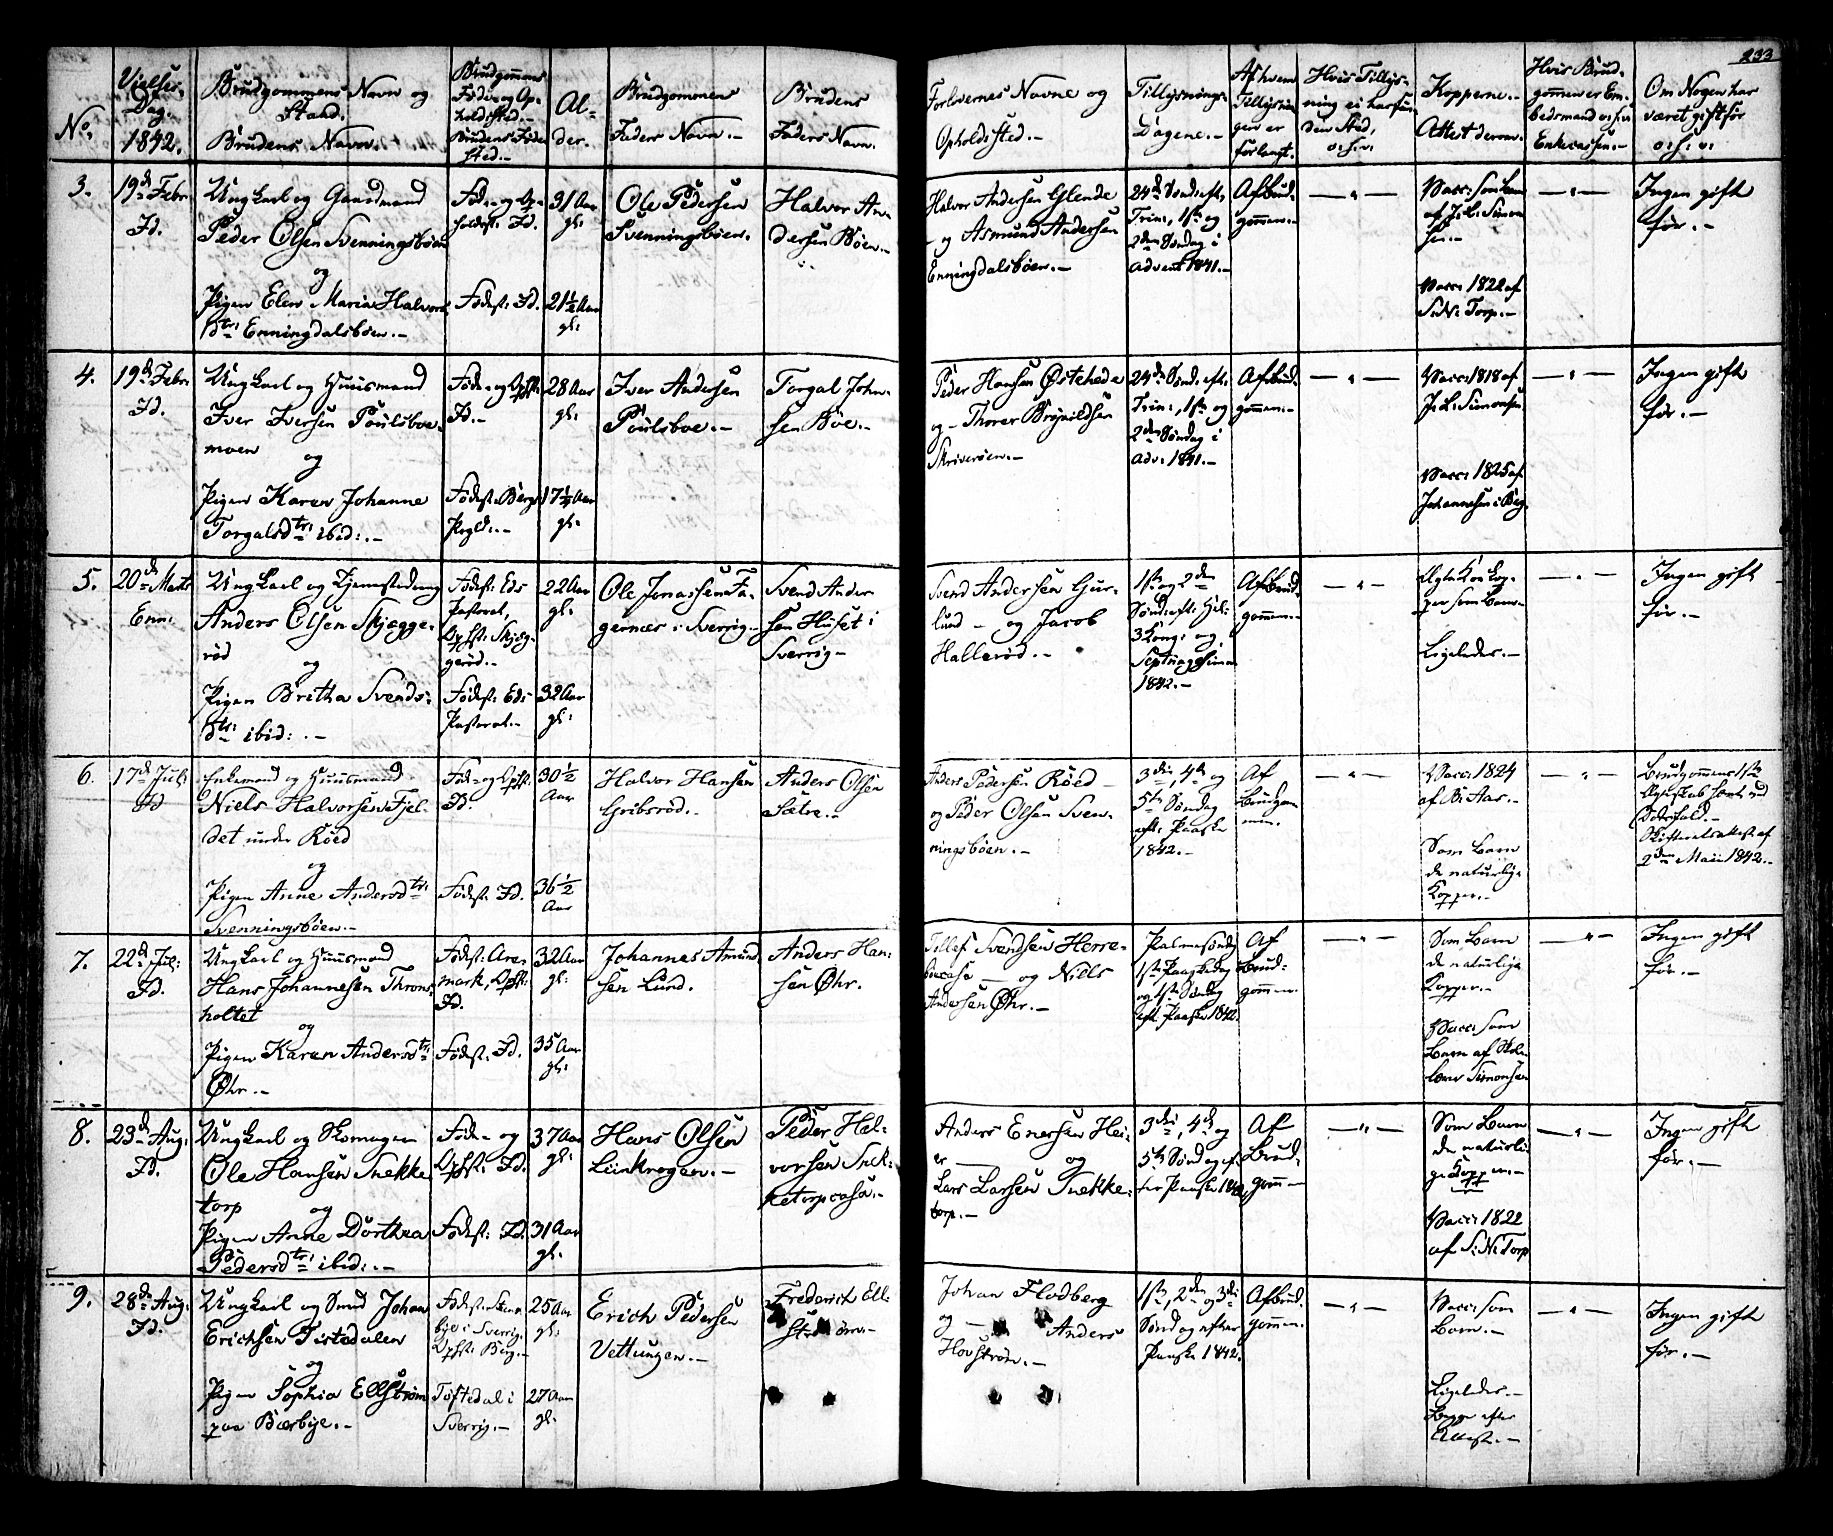 233
No.
Vielses-
Dag.
1842.
Brudgommens Navn og
Stand.
Brudens Navn.
Brudgommens
Føde- og Op-
holdssted.-
Brudens Føde-
sted.-
Al-
der.
Brudgommens
Faders Navn.-
Brudens
Faders Navn.
Forlovernes Navne og
Opholdssted.-
Tillysnings-
Dagene.-
Af hvem
Tillysnin-
gen er
forlangt.
Hvis Tillys-
ning ei har fun-
den Sted,
Kopperne.-
Attest derom.
Hvis Brud-
gommen er Em-
bedsmand
Enkecassen.-
Om Nogen har
været gift før
3.
19de Febr.
Id.
Ungkarl og Gaardmand
Peder Olsen Svenningsbøen
og
Pigen Elen Maria Halvors-
dtr: Enningdalsbøen.-
Føde- og Op-
holdsst: Id.
Fødest: Id.
31 Aar
gl:
21½ Aar
gl:
Ole Pedersen
Svenningsbøen.
Halvor An-
dersen Bøen.-
Halvor Andersen Glende
og Asmund Andersen
Enningdalsbøen.-
24de Sønd: eft.
Trin:, 1ste og
2den Søndag i
Advent 1841.-
Af Brud-
gommen.-
Vacc: som Barn
af J. L. Simon-
sen.-
Vacc: 1822 af
S. N: Torp.-
Ingen gift
før.-
4.
19de Febr.
Id.
Ungkarl og Huusmand
Iver Iversen Poulsboe-
moen
og
Pigen Karen Johanne
Torgalsdtr: ibid:.-
Føde- og Opst:
Id.-
Fødest: Bergs
Prgld:.-
28 Aar
gl:
17½ Aar
gl:
Iver Andersen
Poulsboe.-
Torgal John-
sen Bøe.-
Peder Hansen Østehede
og - Thorer Brynildsen
Skriverøen.-
24de Sønd. eft.
Trin:, 1ste og
2den Søndag i
Adv: 1841.-
Af Brud-
gommen.-
Vacc: 1818 af
J. L: Simonsen.
Vacc: 1825 af
Johannesen i Berg.
Ingen gift
før.-
5.
20de Marts
Enn:
Ungkarl og Hjemstedning
Anders Olsen Skjegge-
rød
og
Pigen Bretha Svends-
dtr: ibid:.-
Fødest: Eds
Pastorat,
Opst: Skjeg-
gerød.-
Fødest: Eds
Pastorat.-
22 Aar
gl:
32 Aar
gl:
Ole Jonassen Fa-
gernæs i Sverrig.-
Svend Ander-
sen Huset i
Sverrig-
Svend Andersen Gur-
lund - og Jacob
Hallerød.-
1ste og 2den
Sønd: eft: Hel:
3 Kong: og
Septuagesima
1842.-
Af Brud-
gommen.-
Som Barn-
Ligeledes.-
Ingen gift
før.-
6.
17de Juli
Id
Enkemand og Huusmand
Niels Halvorsen Fjel-
det under Røed
og
Pigen Anne Andersdtr:
Svenningsbøen.-
Føde- og Opst:
Id.
Fødest: Id.
30½
Aar
36½
Aar
Halvor Hansen
Gribsrød.
Anders Olsen
Sætre.-
Anders Pedersen Røed -
og Peder Olsen Sven-
ningsbøen.-
3die, 4de og
5te Søndag
eft: Paaske
1842.-
Af
Brudgom-
men.
Vacc: 1824
af B: Aas.-
Som Barn
de naturlige
Kopper.-
Brudgommens 1ste
Dødsfald.-
Skifteretsattest af
2den Maii 1842.-
7.
22de Jul:
Id.
Ungkarl og Huusmand
Hans Johannesen Throns-
holtet
og
Pigen Karen Andersdtr:
Øhr.-
Fødest: Are-
mark, Opst:
Id.
Fødest: Id.
32 Aar
gl:
35 Aar
gl:
Johannes Amund-
sen Lund.-
Anders Han-
sen Øhr.
Tollef Svendsen Herre-
- og Niels
Andersen Øhr.-
Palmesøndag
1ste Paaskedag
og 1ste Søndag
eft. Paaske 1842.
Af
Brud-
gommen.
Som Barn
de naturlige
Kopper.-
Vacc: som
Barn af
Simonsen
Ingen gift
før.-
8.
23de Aug:
Id.
Ungkarl og Skomager
Ole Hansen Snekke-
torp
og
Pigen Anne Dorthea
Pedersdtr: ibid:.-
Føde- og
Opst: Id.
Fødest: Id.
37 Aar
gl:
31 Aar
gl:
Hans Olsen
Liinkrogen.-
Peder Hal-
vorsen Snek-
ketorpaasa.-
Anders Enersen Hei-
er og
Lars Larsen Snekke-
torp.-
3die, 4de og
5te Søndag ef-
ter Paaske 1842.
Af
Brud-
gomm-
Som Barn
de naturli-
ge Kopper.-
Vacc: 1822
af S: N: Torp
Ingen gift
før.-
9.
28de Aug:
Id.
Ungkarl og Smed Johan
Erichsen Tistedalen
og
Pigen Sophia Ellstrøm
paa Bærbye.-
bye i Sverrig,
Opst: Berg.-
Tøftedal i
Sverrig.-
25 Aar
gl:
27 Aar
gl:
Erich Pedersen
Vettungen.-
Frederich Ell-
strøm.-
Johan Flodberg
og - Anders
Hovstrøm.-
1ste, 2den og 3die
Søndag efter
Paaske 1842.
Af Brud-
gommen.
Vacc: som
Barn.-
Ligeledes.-
Begge efter
Attest.-
Ingen gift
før.-